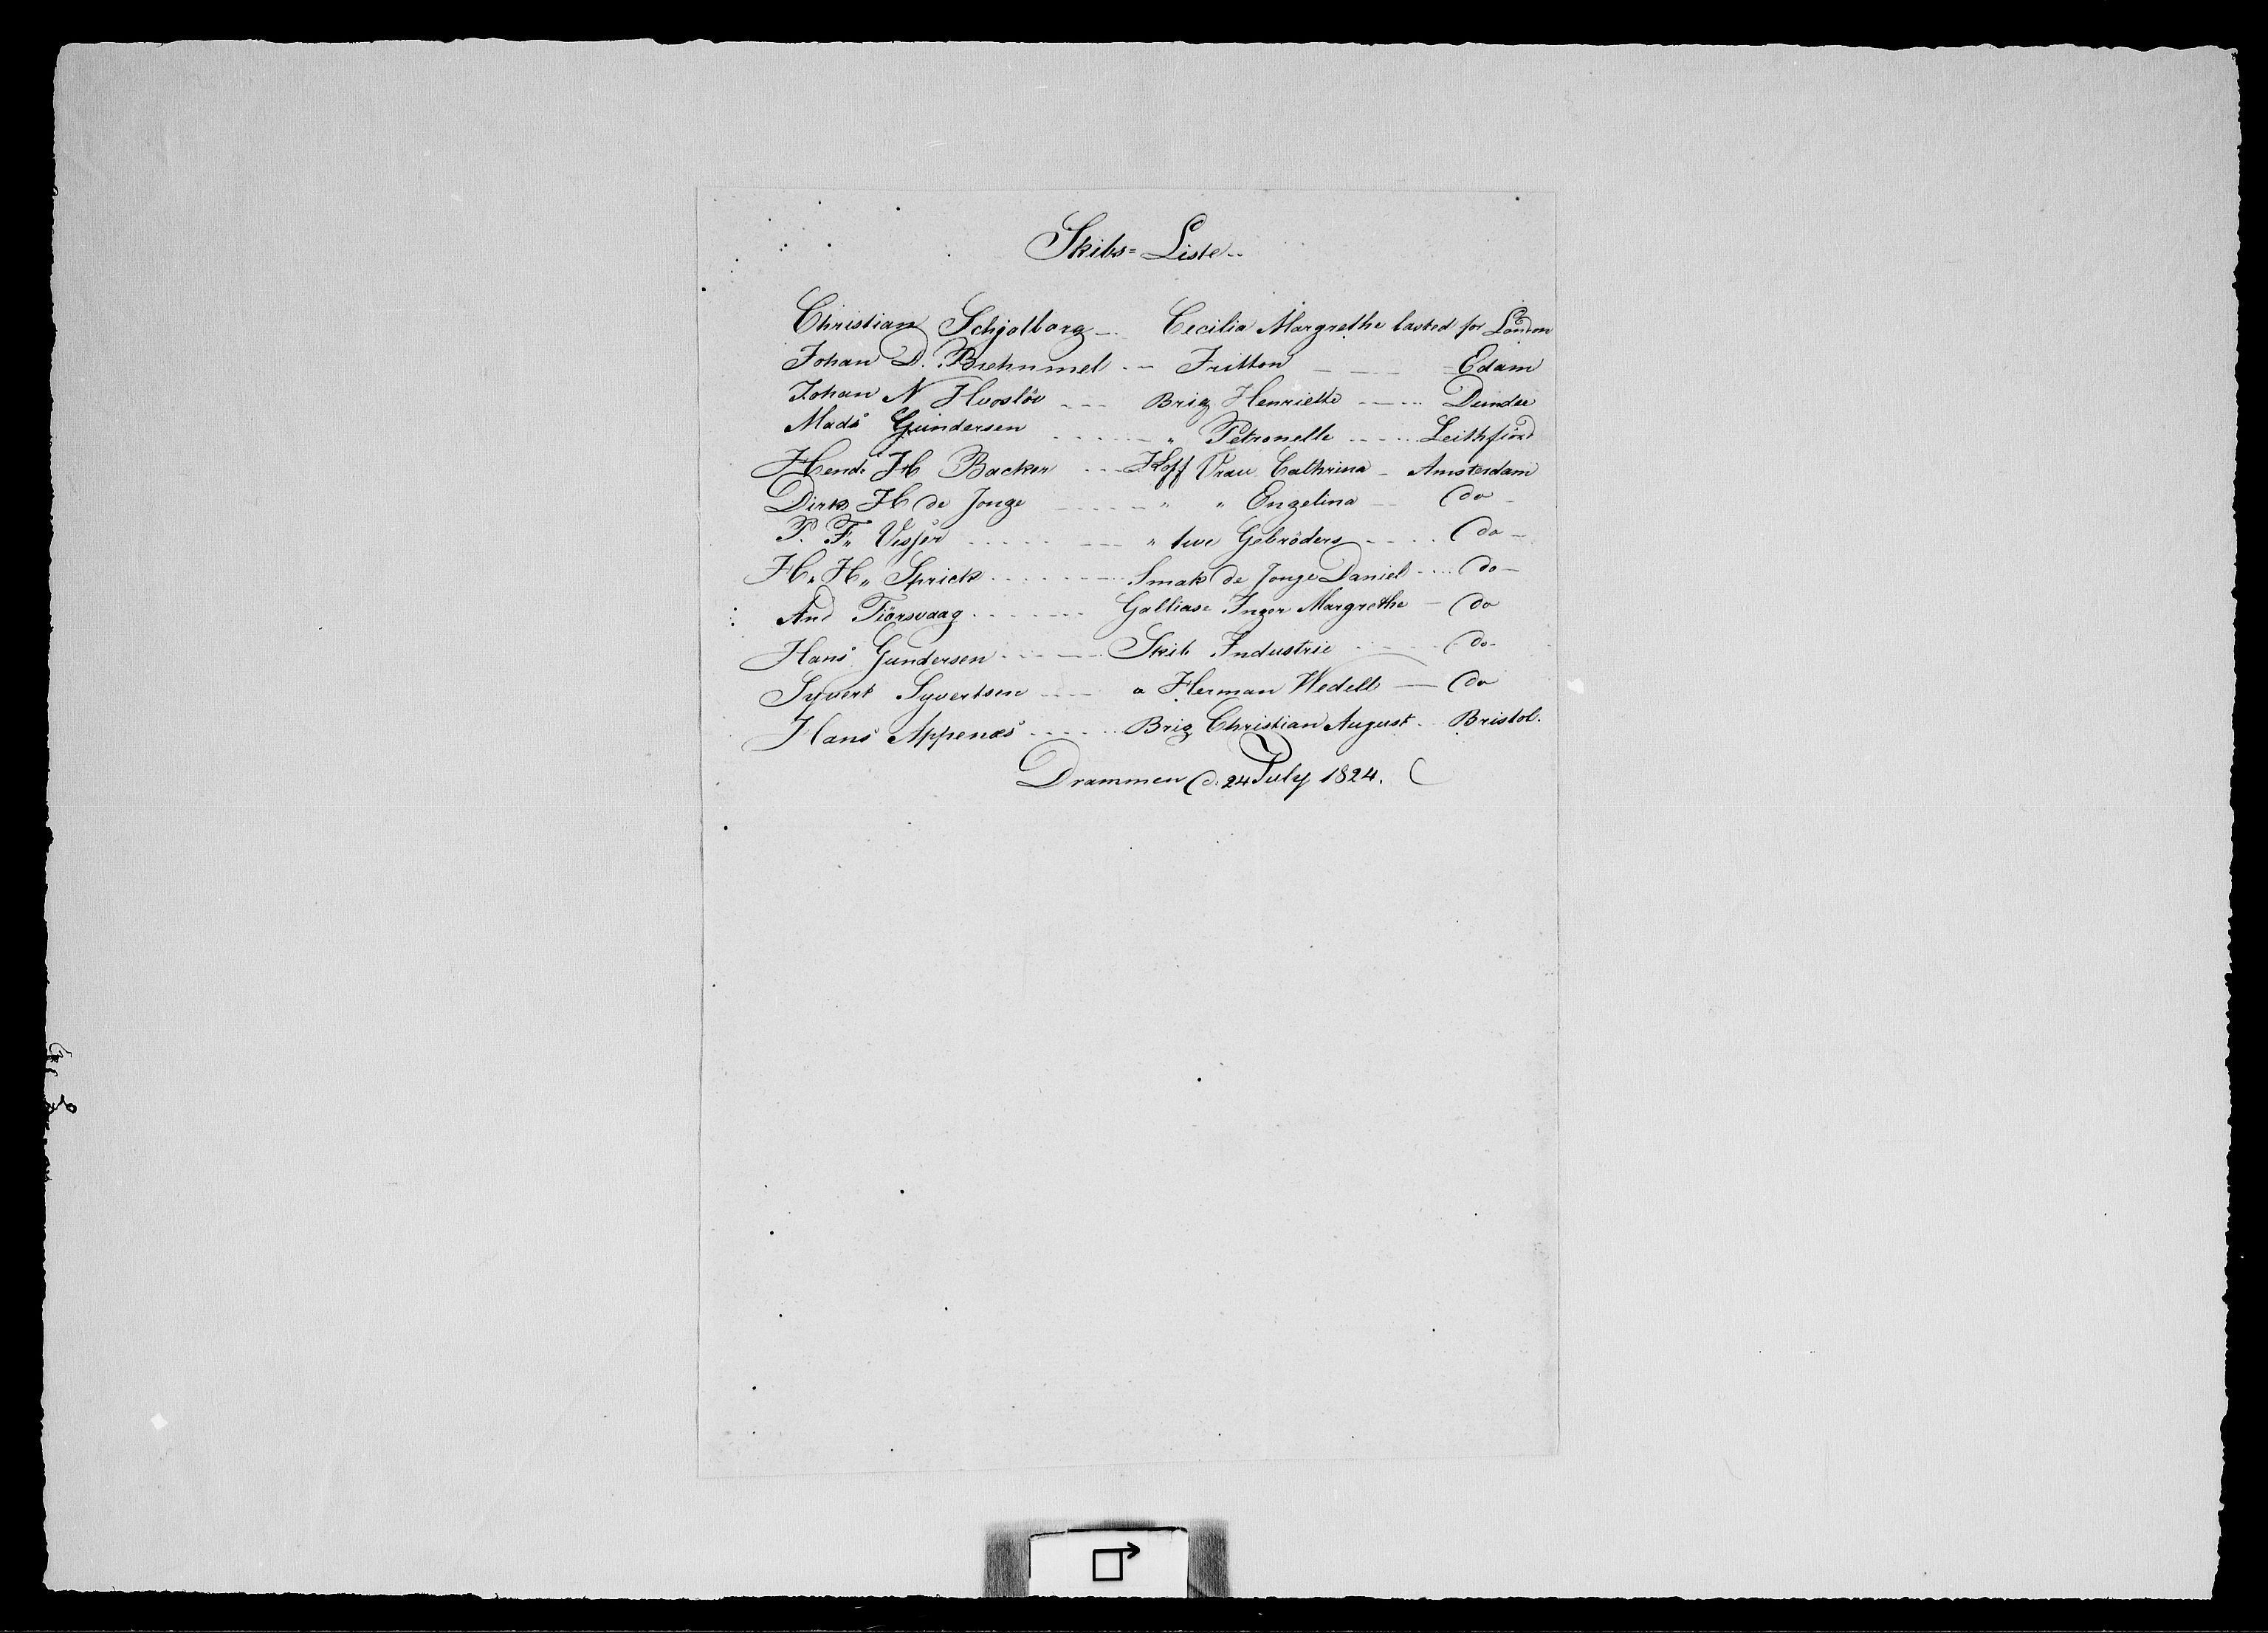 Skibs= Liste..
Christian Schjølborg -.. Cecilia Margrethe lasted for London
Johan D. Brehmmel .- Fritton - - - = Edam
Johan N Hvosløv - - - Brig Henriette - - - - Dundee
Mads Gundersen - - - - - " Petronelle - - - - Leithfiord
Hend: H Backer - - - Koff Vrau Cathrina - Amsterdam
Dirk H de Jonge - - - - - " " Engelina - do -
P. F. Visser - - - - - - " twe Gebröders - - - - do -
H. H. Sprick - - - - - - Smak de Jonge Daniel - - - do -
And Tiörsvaag - - - - - - Galliase Inger Margrethe - do
Hans Gundersen - - - - Skib Industrie - - - - do -
Syvert Syvertsen - - - - " Herman Wedell - do
Hans Appenæs - - - - - Brig Christian August - Bristol.
Drammen d. 24 July 1824.